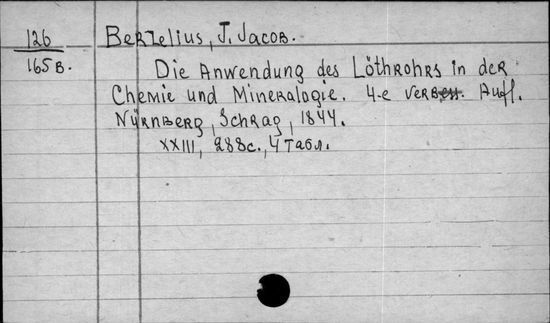 126
165 B.
Berzelius, J. Jacob.
Die Anwendung des Löthrohrs in der
Chemie und Mineralogie. 4-e verbess. Aufl.
Nürnberg, Schrag, 1844.
XXIII, 288 с., 4 табл.